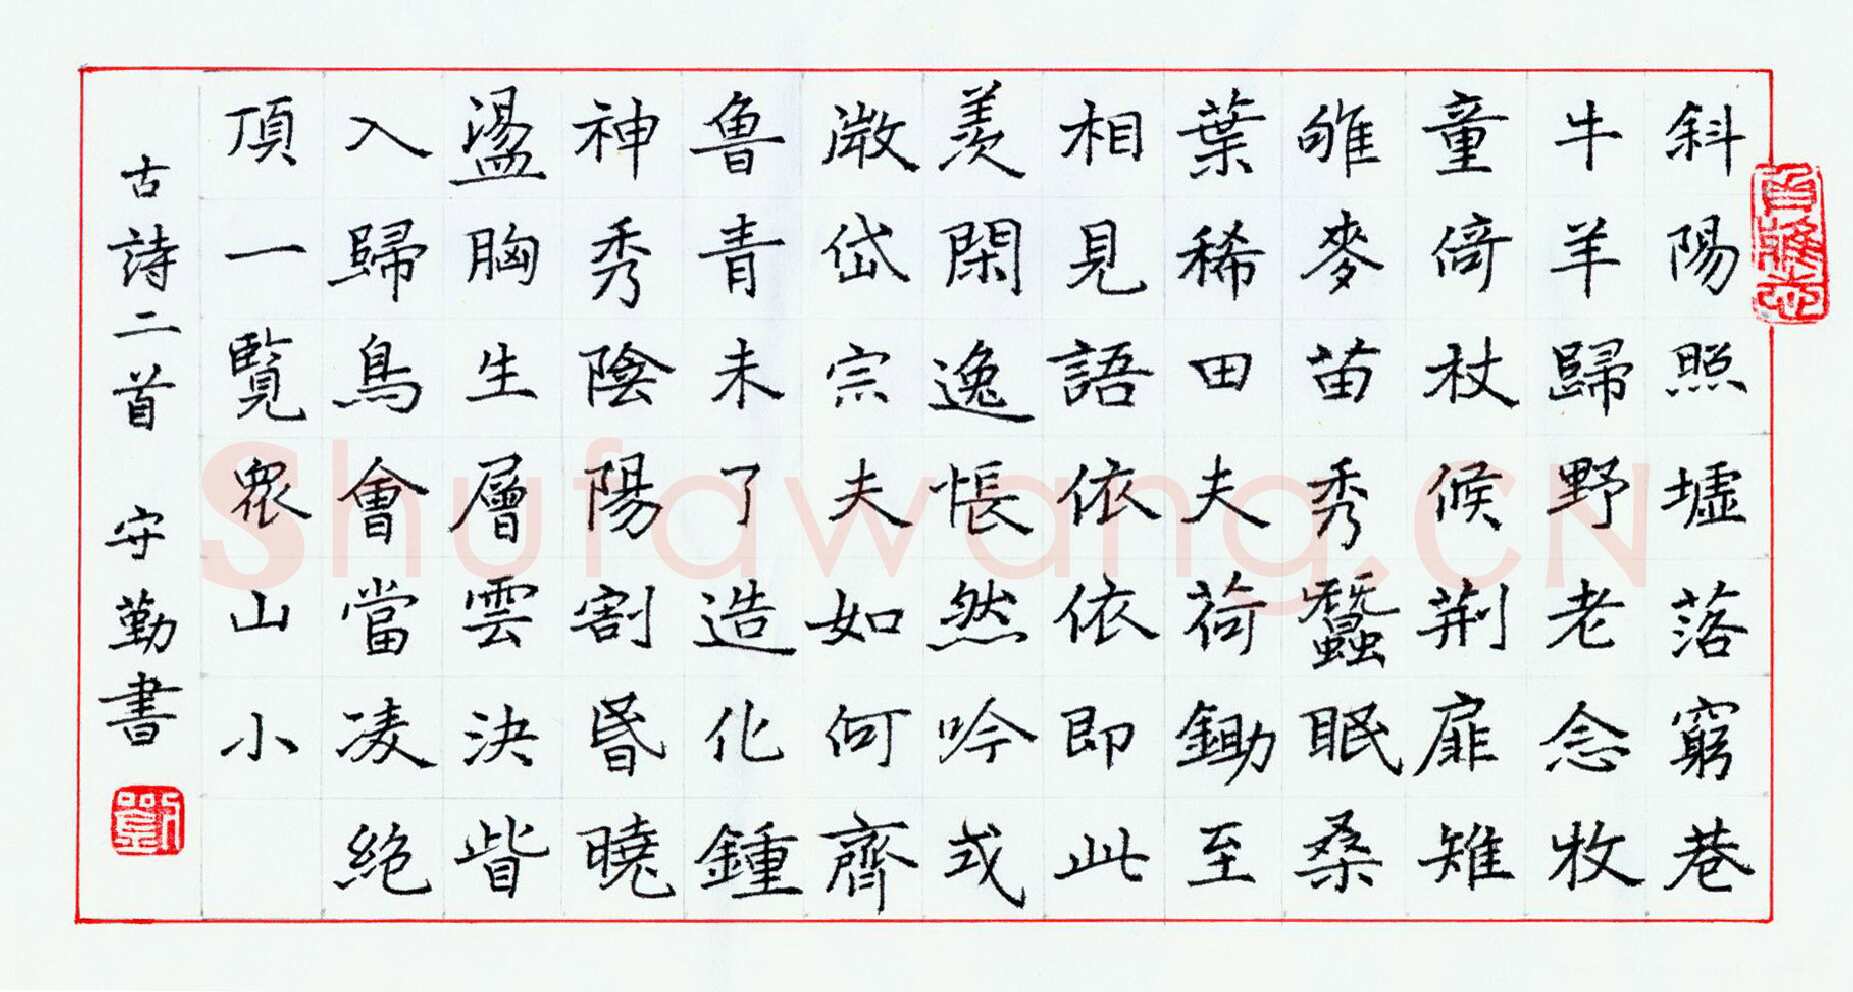 斜陽照墟落窮巷
牛羊歸野老念牧
童倚杖候荆扉雉
雊麥苗秀蠶眠桑
葉稀田夫荷鋤至
相見語依依即此
羨閑逸悵然吟式
微岱宗夫如何齊
魯青未了造化鍾
神秀陰陽割昏曉
盪胸生層雲決眥
入歸鳥會當凌絕
頂一覽衆山小
古詩二首 守勤書
劉
Shufawang.CN